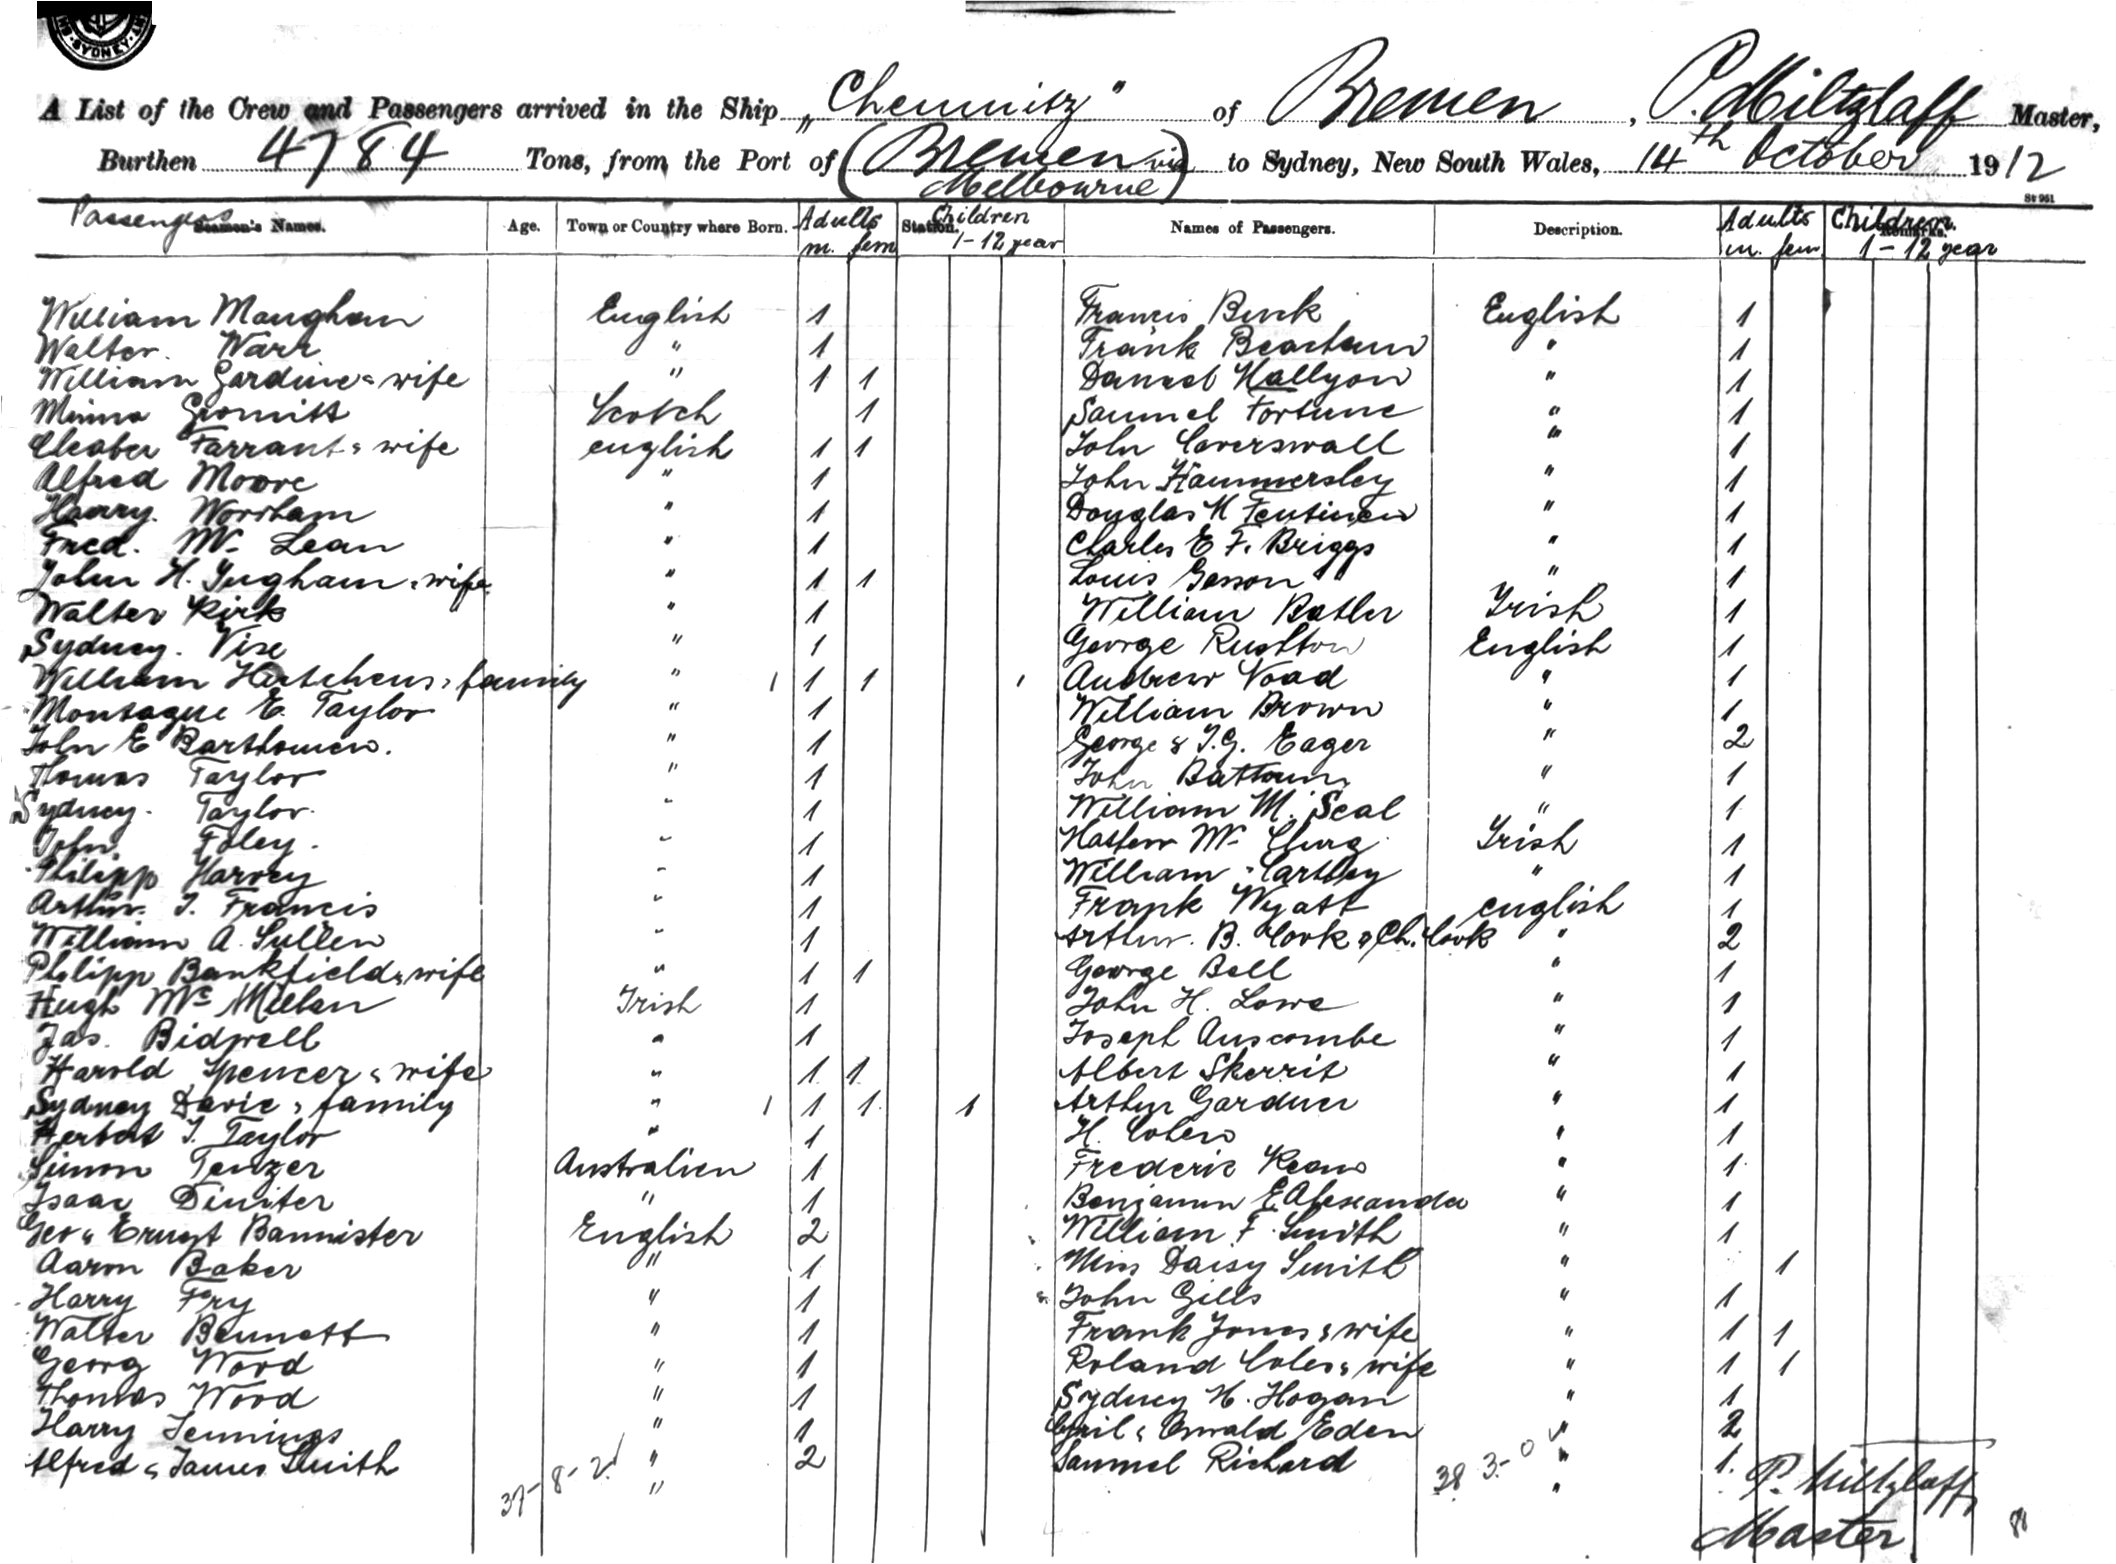 SYDNEY
A List of the Crew and Passengers arrived in the Ship „Chemnitz" of Bremen, P. Miltzlaff Master,
Burthen 4784 Tons, from the Port of (Bremen via Melbourne) to Sydney, New South Wales, 14th October 1912
St 961
Passengers Seamen's Names. Age. Town or Country where Born. Adults m. fem Station. Children 1-12 year Names of Passengers. Description. Adults m. fem Children Remarks. 1-12 year
William Maughan English 1
Walter Warr " 1
William Gardine & wife " 1 1
Minna Scotch 1
Farrant & wife english 1 1
Alfred Moore " 1
Harry Worrham " 1
Fred. Mc Lean " 1
John H. Ingham & wife " 1 1
Walter Kirk " 1
Sydney. Vise " 1
William Hutchens & family " 1 1 1 1
Montague E. Taylor " 1
John E Bartholmew. " 1
Thomas Taylor " 1
Sydney. Taylor. " 1
John Foley. " 1
Philipp Harvey " 1
Arthur. J. Francis " 1
William A. Sullen " 1
Philipp Bankfield & wife " 1 1
Hugh Mc Millan Irish 1
Jas. Bidwell " 1
Harold Spencer & wife " 1 1
Sydney Davie & family " 1 1 1 1
Herbert J. Taylor " 1
Simon Tenzer Australien 1
Isaac Diniter " 1
Geo & Ernst Bannister English 2
Aaron Baker " 1
Harry Fry " 1
Walter Bennett " 1
Georg Wood " 1
Thomas Wood " 1
Harry Jennings " 1
Alfred & James Smith " 2
37-8-2 "
Francis English 1
Frank Beacham " 1
Daniel Hallyon " 1
Samuel Fortune " 1
John Coverswall " 1
John Hammersley " 1
Douglas H " 1
Charles E. F. Briggs " 1
Louis " 1
William Batler Irish 1
George Rushton English 1
Andrew Noad " 1
William Brown " 1
George & J.G. Eager " 2
John " 1
William M. Seal " 1
Mc Clurg Irish 1
William Cartley " 1
Frank Wyatt english 1
Arthur. B. Cook & Ch. Cook " 2
George Bell " 1
John H. Lowe " 1
Joseph Auscombe " 1
Albert Skerrit " 1
Arthur Gardner " 1
H. Cohen " 1
Frederic Keans " 1
Benjamin E Alexander " 1
William F. Smith " 1
Miss Daisy Smith " 1
John Gills " 1
Frank Jones & wife " 1 1
Roland Coles & wife " 1 1
Sydney H. Hogan " 1
Cyril & Oswald Eden " 2
Samuel Richard " 1.
38 3-0 "
P. Miltzlaff
Master